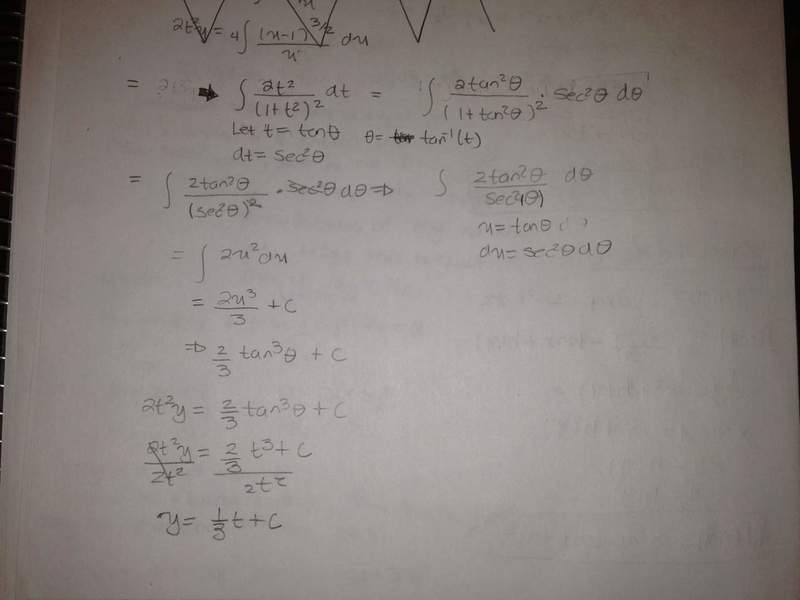 2t²y = 4∫ (u-1)^3/2 / u du
= ∫ 2t² / (1+t²)² dt = ∫ 2tan²θ / (1+tan²θ)² · sec²θ dθ
Let t = tanθ θ = tan⁻¹(t)
dt = sec²θ
= ∫ 2tan²θ / (sec²θ)² · sec²θ dθ ⇒ ∫ 2tan²θ / sec²(θ) dθ
u = tanθ
du = sec²θ dθ
= ∫ 2u² du
= 2u³/3 + C
⇒ 2/3 tan³θ + C
2t²y = 2/3 tan³θ + C
2t²y / 2t² = 2/3 t³ + C / 2t²
y = 1/3 t + C